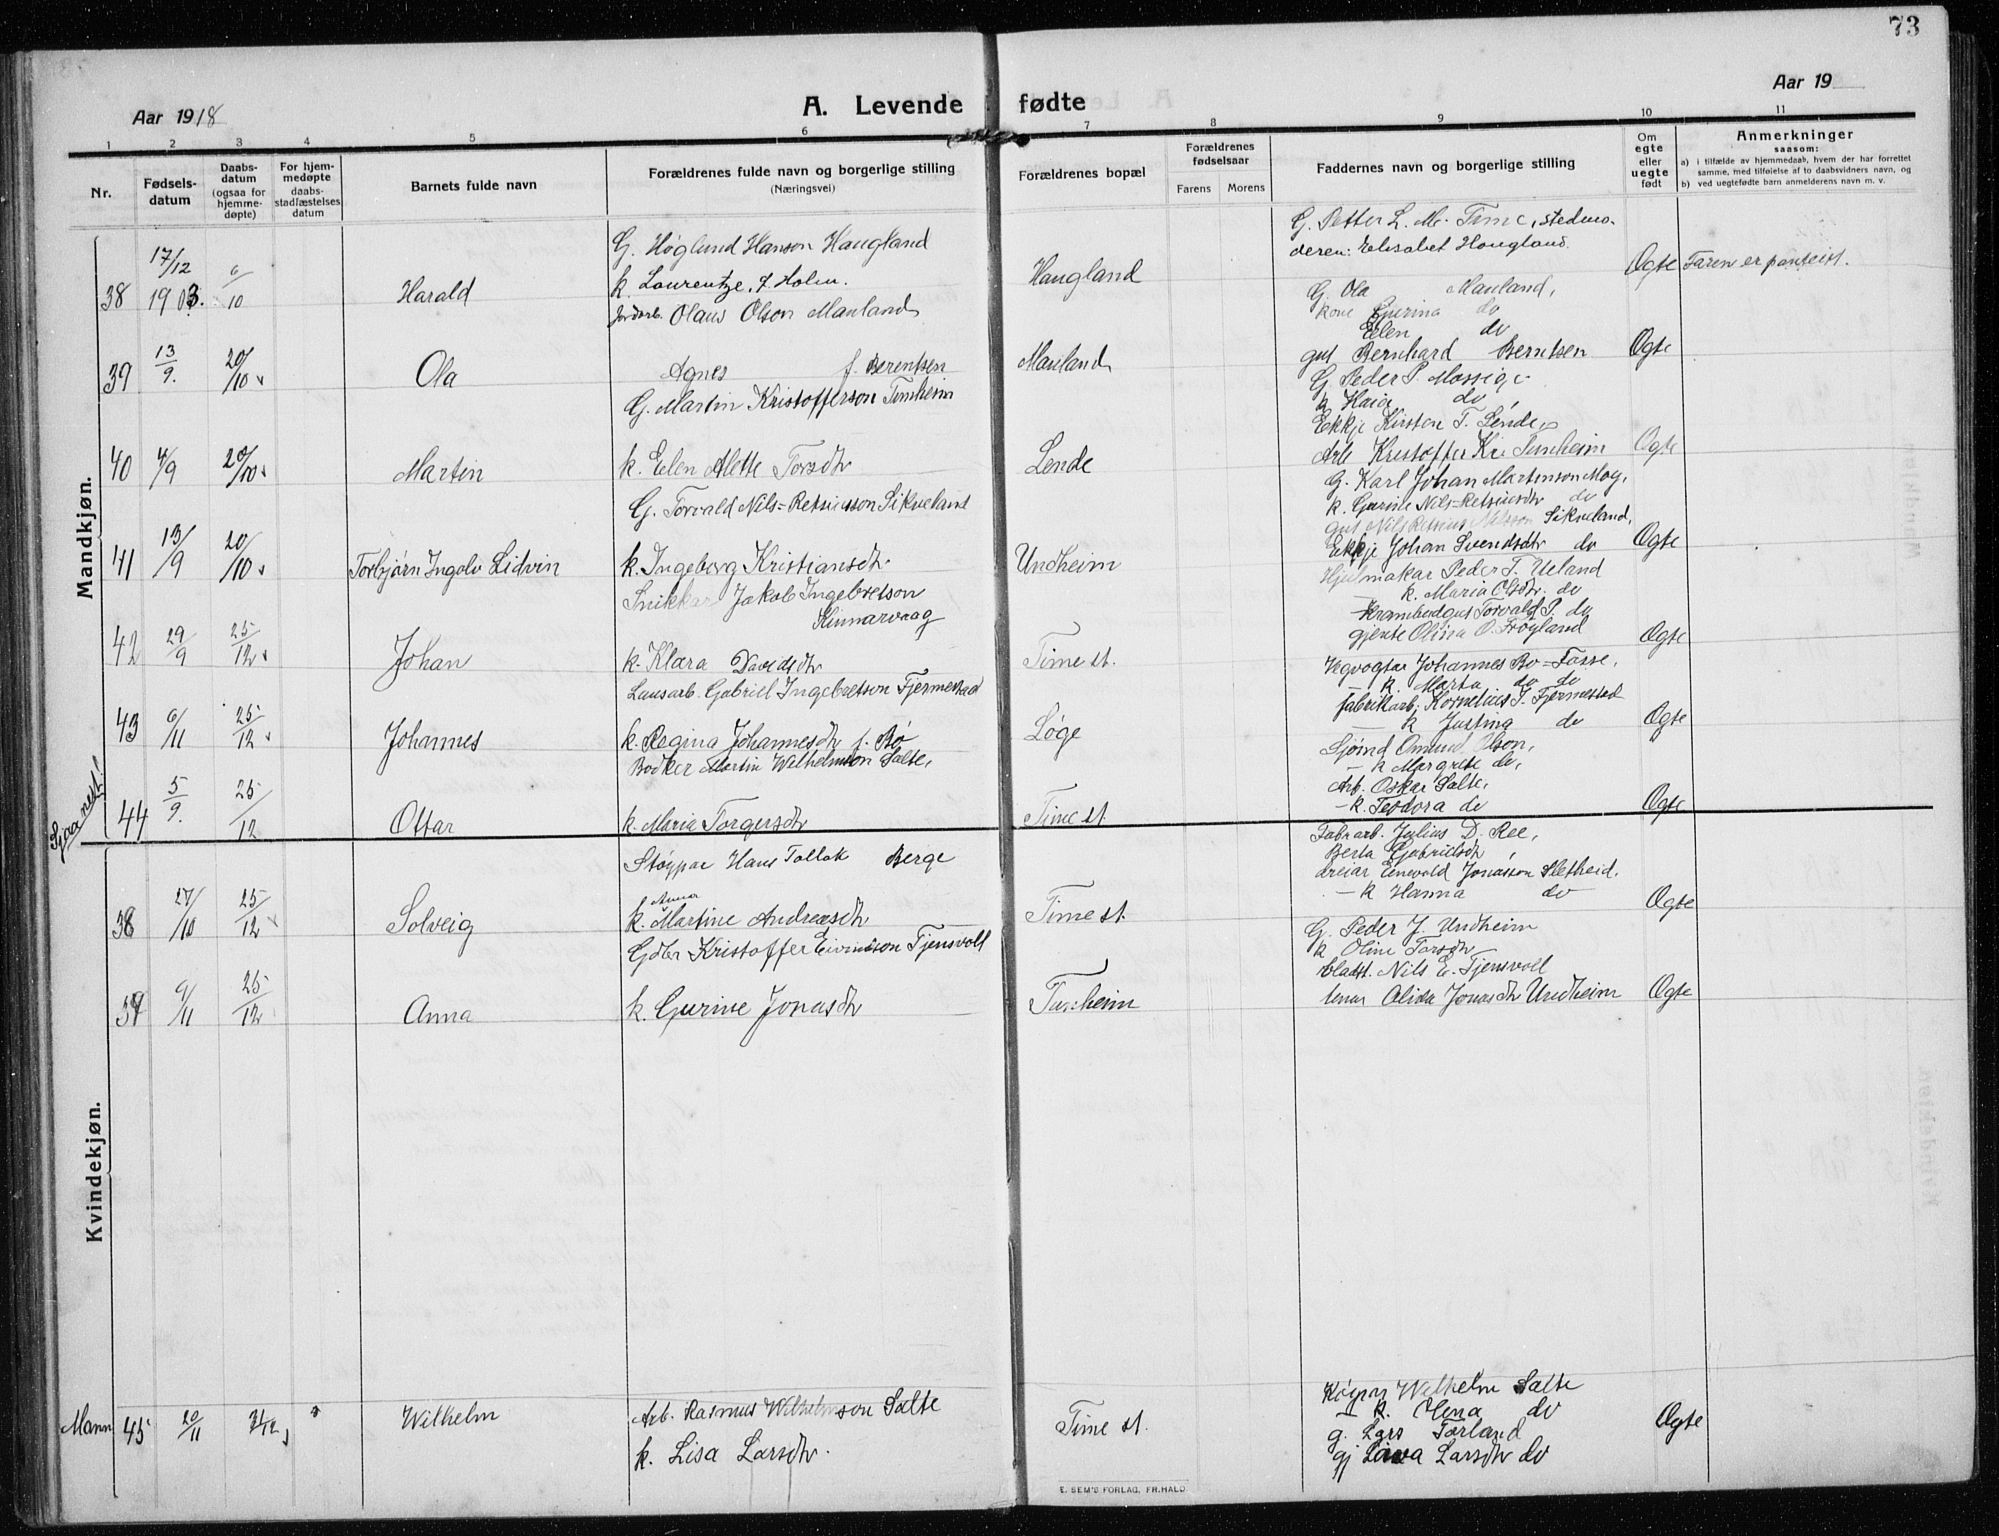 73
Aar 1918
A. Levende fødte
Aar 19
1 2 3 4 5 6 7 8 9 10 11
Nr.
Fødsels-
datum
Daabs-
datum
(ogsaa for
hjemme-
døpte)
For hjem-
medøpte
daabs-
stadfæstelses
datum
Barnets fulde navn
Forældrenes fulde navn og borgerlige stilling
(Næringsvei)
Forældrenes bopæl
Forældrenes
fødselsaar
Farens Morens
Faddernes navn og borgerlige stilling
Om
egte
eller
uegte
født
Anmerkninger
saasom:
a) i tilfælde av hjemmedaab, hvem der har forrettet
samme, med tilføielse af to daabsvidners navn, og
b) ved uegtefødte barn anmelderens navn m. v.
Mandkjøn.
38 17/12 1903. 6/10 Harald
G. Høglund Hanson Haugland
k. Laurentze, f Holm.
Haugland
G. Petter L. M. Time, stedmo-
deren: Elisabet Haugland.
Ogte Faren er panteist.
39 13/9. 20/10 Ola
Jordarb. Olaus Olson Mauland
Agnes f. Berentsen
Mauland
G. Ola Mauland,
kone Gurina do
Elen do
gut Bernhard Berntsen
Ogte
40 4/9 20/10 Martin
G. Martin Kristofferson Tunheim
k. Elen Alette Torsdtr
Lende
G. Peder P. Mossige
k Haia do
Ekkje Kirsten T. Lende,
Arb Kristoffer Kr. Tunheim
Ogte
41 13/9 20/10 Torbjørn Ingolv Lidvin
G. Torvald Nils-Retsiusson Sikveland
k. Ingeborg Kristiansdtr
Undheim
G. Karl Johan Martinson Mog,
k. Gurine Nils-Retsiusdtr do
gut Nils Retsius Nilsson Sikveland,
Ekkje Johan Svendsdtr do
Ogte
42 29/9 25/12 Johan
Snikkar Jakob Ingebretson
Kinnarvaag
k. Klara Davidsdtr
Time st.
Hjulmakar Peder T. Ueland
k. Maria Olsdtr. do
krambodgut Torvald P. do
gjente Olina O. Frøyland
Ogte
43 6/11 25/12 Johannes
Lausarb. Gabriel Ingebretson Fjermestad
k. Regina Johannesdtr f. Bø
Løge
Vegvogtar Johannes Bø-Fosse,
k. Marta do do
fabrikarb. Kornelius I. Fjermestad
k Justina do
Ogte
Sjaa nest!
44 5/9. 25/12 Ottar
Bødker Martin Wilhelmson Salte,
k. Maria Torgersdtr
Time st.
Sjømd Omund Olson,
— k Margrete do,
Arb. Oskar Salte,
— k. Teodora do
Ogte
Kvindekjøn.
38 27/10 25/12 Solveig
Støypar Hans Tollak Berge
Anna
k. Martine Andreasdtr
Time st.
Fabrarb. Julius D. Ree,
Berta Gabrielsdtr,
dreiar Enevald Jonasson Sletheid.
— k Hanna do
Ogte
39 9/11 25/12 Anna
Gdbr Kristoffer Eivindson Tjensvoll
k. Gurine Jonasdtr
Tunheim
G. Peder J. Undheim
k Oline Torsdtr
bladst. Nils E. Tjensvoll
tenar Alida Jonasdtr Undheim
Ogte
Mann 45 20/11 31/12 Wilhelm
Arb. Rasmus Wilhelmson Salte
k. Lisa Larsdtr.
Time st.
Køyrar Wilhelm Salte
— k. Olena do
g. Lars Torland
gj Larsdtr do
Ogte
E. SEM'S FORLAG, FR.HALD